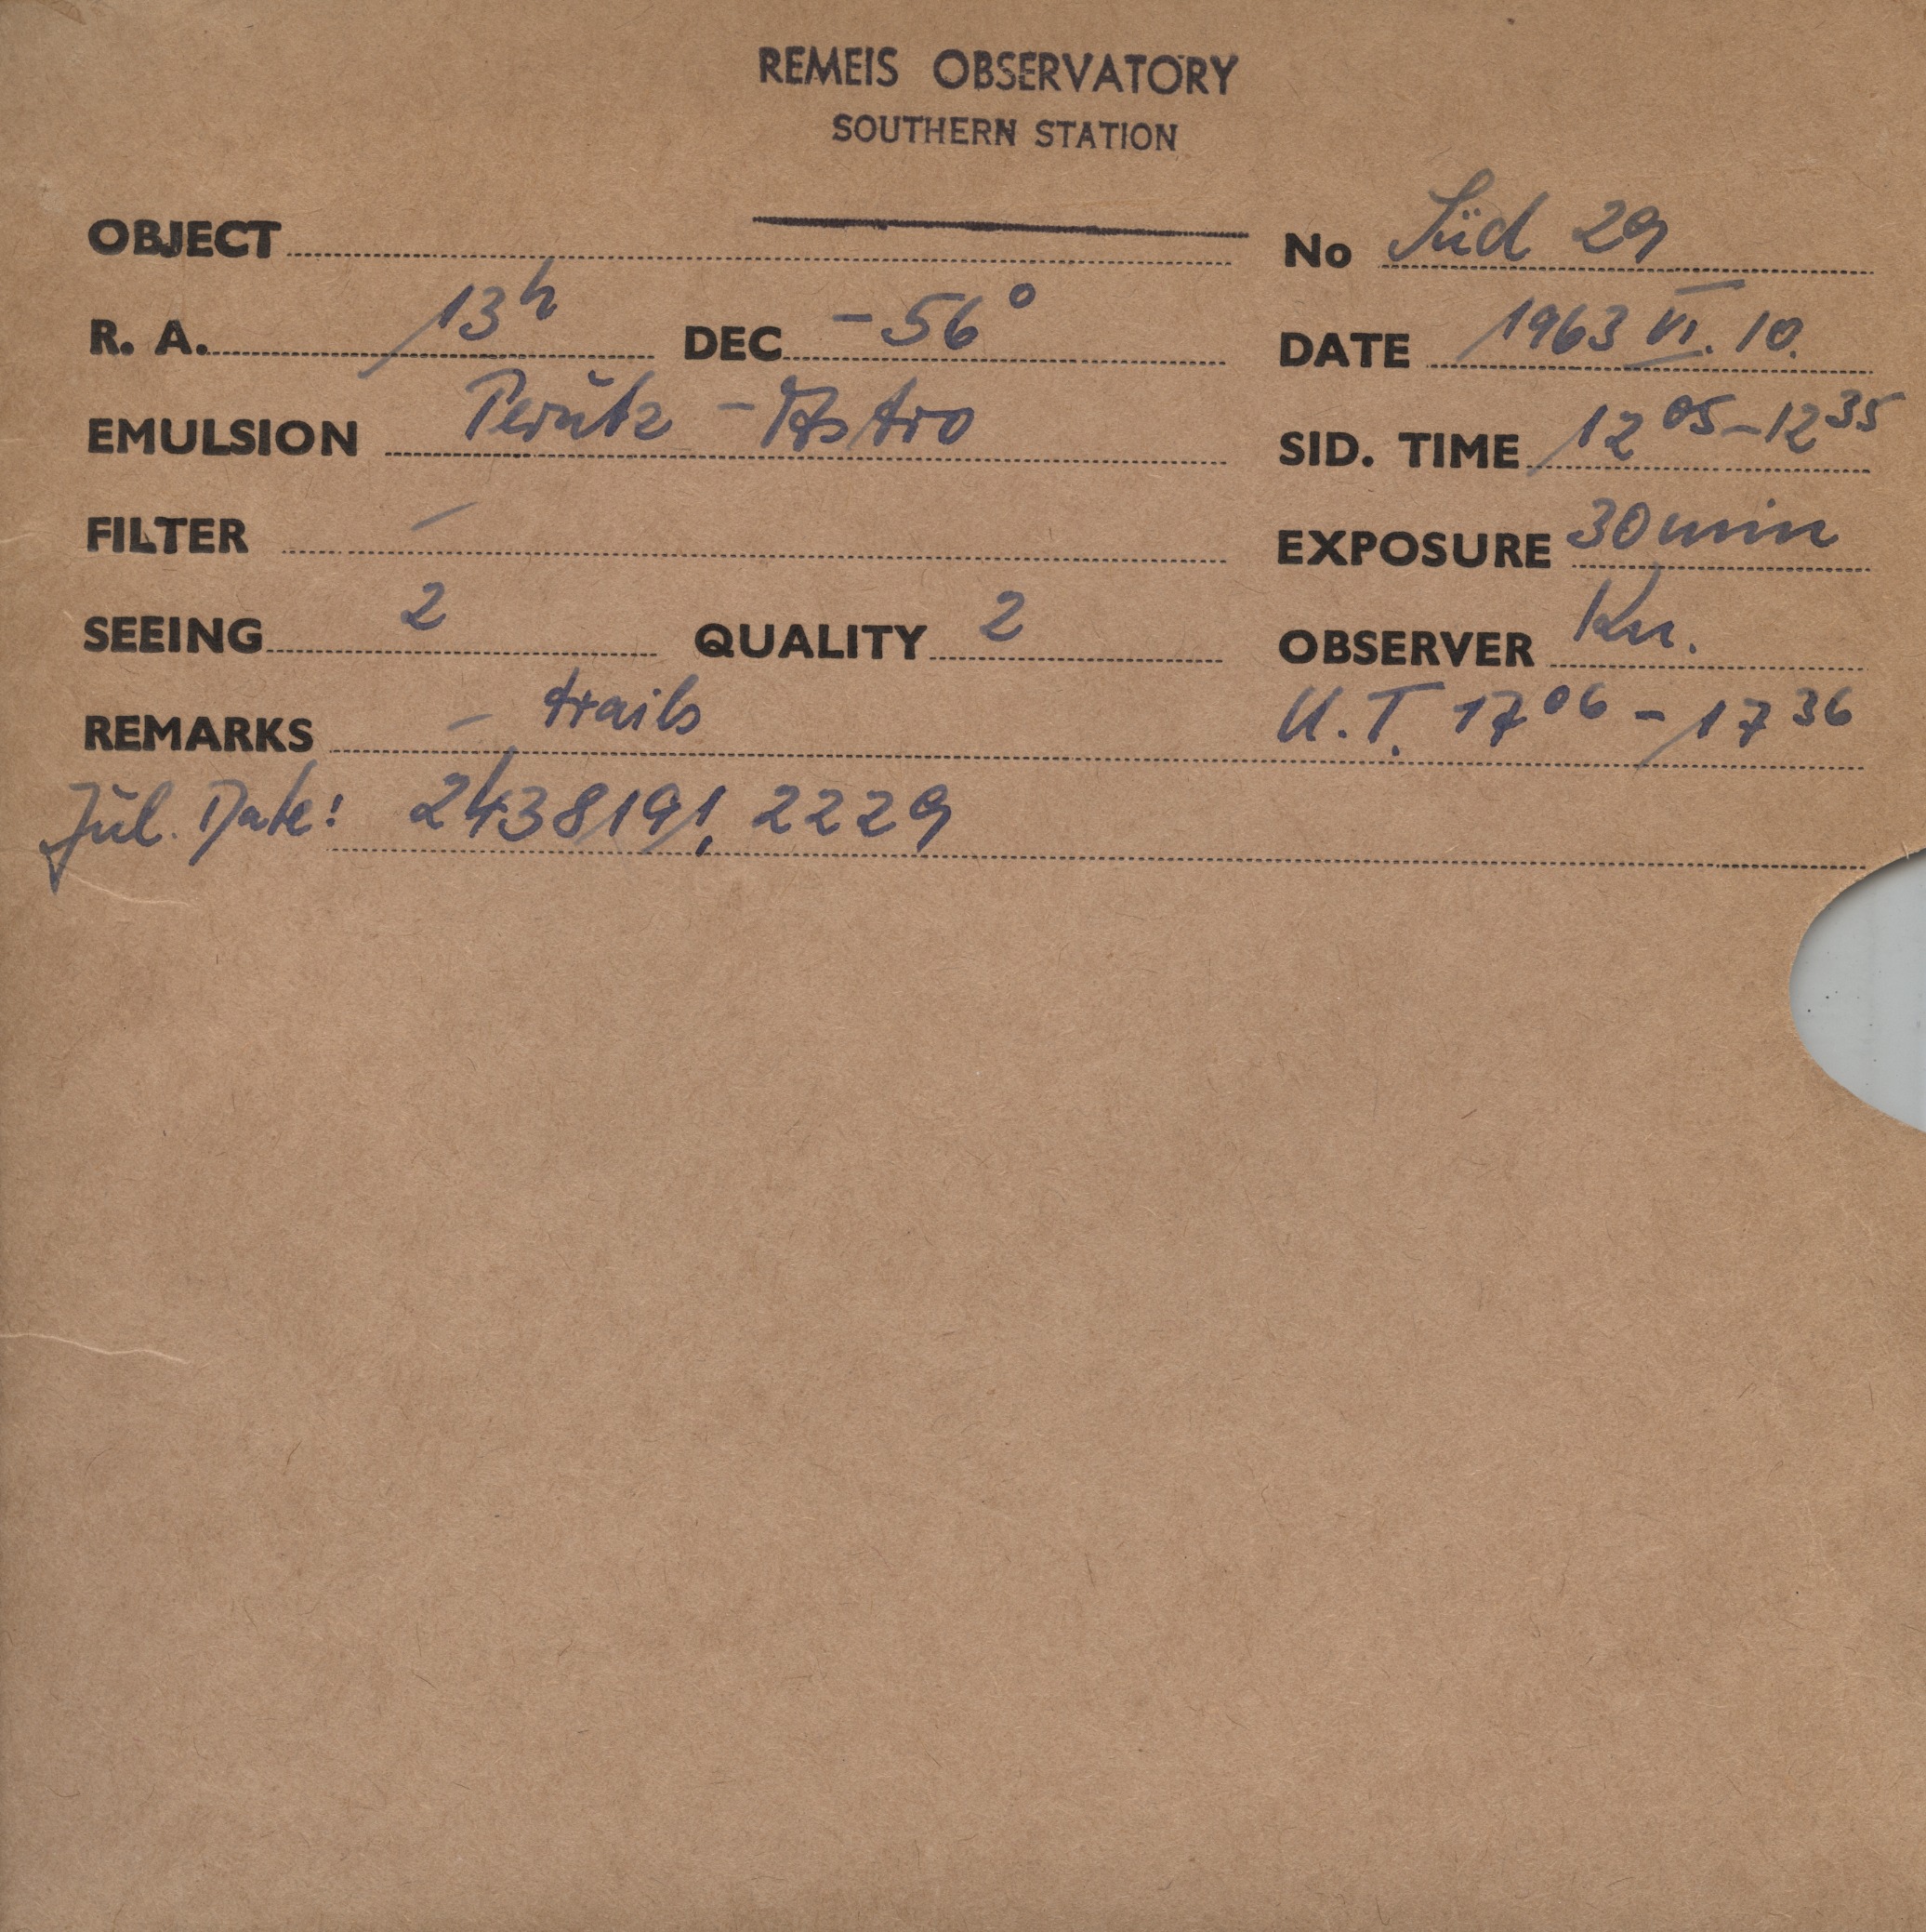 REMEIS OBSERVATORY
SOUTHERN STATION
OBJECT No Süd 29
R. A. 13h DEC -56° DATE 1963 VI. 10.
EMULSION Perutz - Astro SID. TIME 12 05 - 12 35
FILTER - EXPOSURE 30 min
SEEING 2 QUALITY 2 OBSERVER Kn.
REMARKS - trails U.T. 17 06 - 17 36
Jul. Date: 2438191, 2229